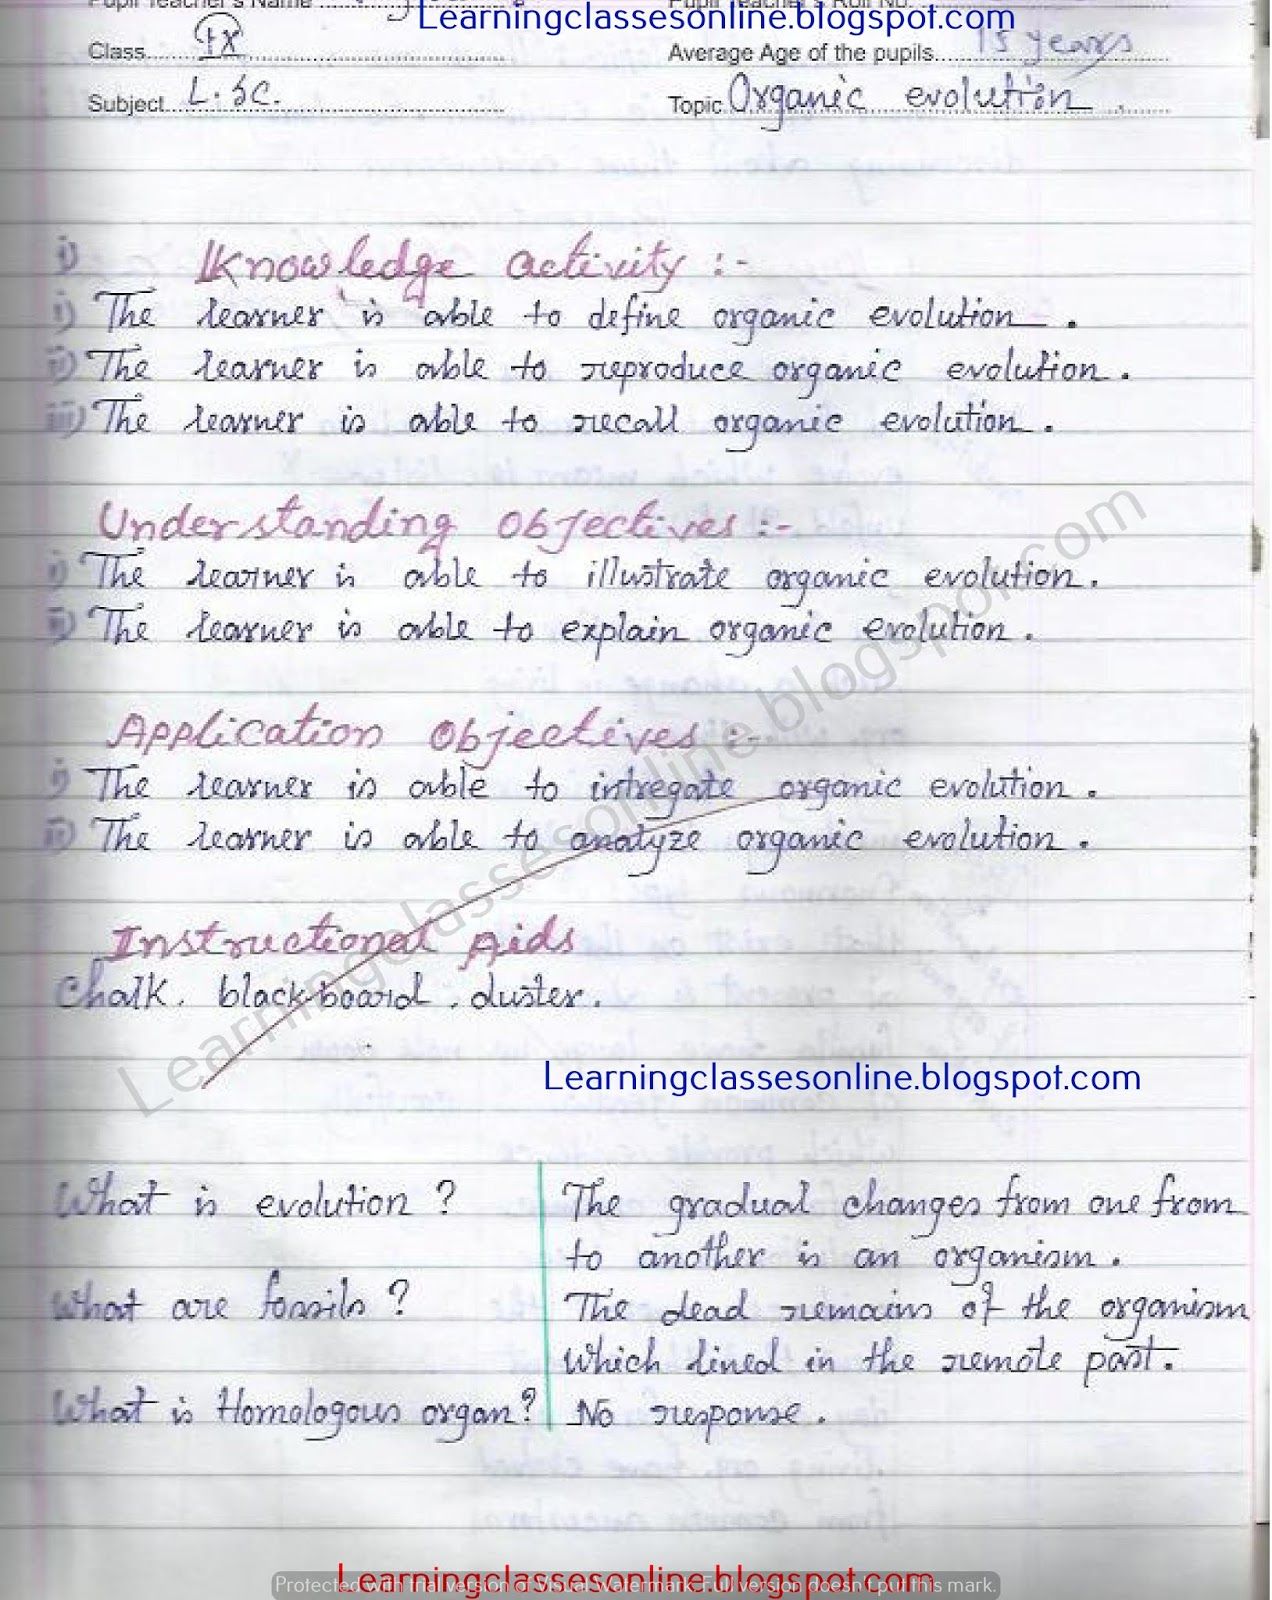 Pupil Teacher's Name
Learningclassesonline.blogspot.com
Pupil Teacher's Roll No.
Class IX
Average Age of the pupils 15 years
Subject L.Sc.
Topic Organic evolution.
i) Knowledge activity :-
i) The learner is able to define organic evolution.
ii) The learner is able to reproduce organic evolution.
iii) The learner is able to recall organic evolution.
Understanding objectives :-
i) The learner is able to illustrate organic evolution.
ii) The learner is able to explain organic evolution.
Application objectives :-
i) The learner is able to intregate organic evolution.
ii) The learner is able to analyze organic evolution.
Instructional Aids
Chalk, blackboard, duster.
Learningclassesonline.blogspot.com
Learningclassesonline.blogspot.com
What is evolution? The gradual changes from one from
to another is an organism.
What are fossils? The dead remains of the organism
which lined in the remote past.
What is Homologous organ? No response.
Learningclassesonline.blogspot.com
Protected with trial version of Visual Watermark. Full version doesn't put this mark.